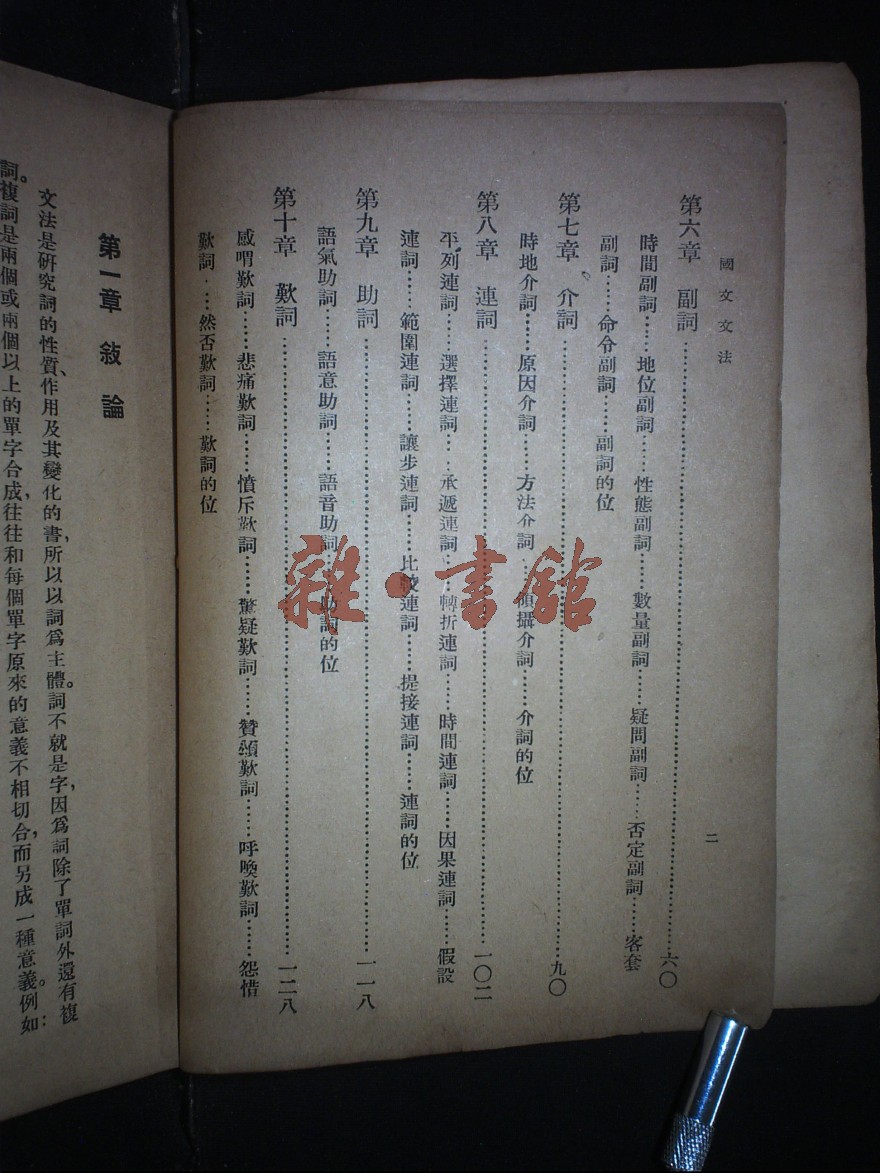 國文文法
二
第六章 副詞……六〇
時間副詞……地位副詞……性態副詞……數量副詞……疑問副詞……否定副詞……客套
副詞……命令副詞……副詞的位
第七章 介詞……九〇
時地介詞……原因介詞……方法介詞……攝介詞……介詞的位
第八章 連詞……一〇二
平列連詞……選擇連詞……承遞連詞……轉折連詞……時間連詞……因果連詞……假設
連詞……範圍連詞……讓步連詞……比較連詞……提接連詞……連詞的位
第九章 助詞……一一八
語氣助詞……語意助詞……語音助詞……助詞的位
第十章 歎詞……一二八
感喟歎詞……悲痛歎詞……憤斥歎詞……驚疑歎詞……贊頌歎詞……呼喚歎詞……怨惜
歎詞……然否歎詞……歎詞的位
第一章 敍論
文法是研究詞的性質、作用及其變化的書，所以以詞爲主體。詞不就是字，因爲詞除了單詞外還有複
詞。複詞是兩個或兩個以上的單字合成，往往和每個單字原來的意義不相切合，而另成一種意義。例如：
雜·書館